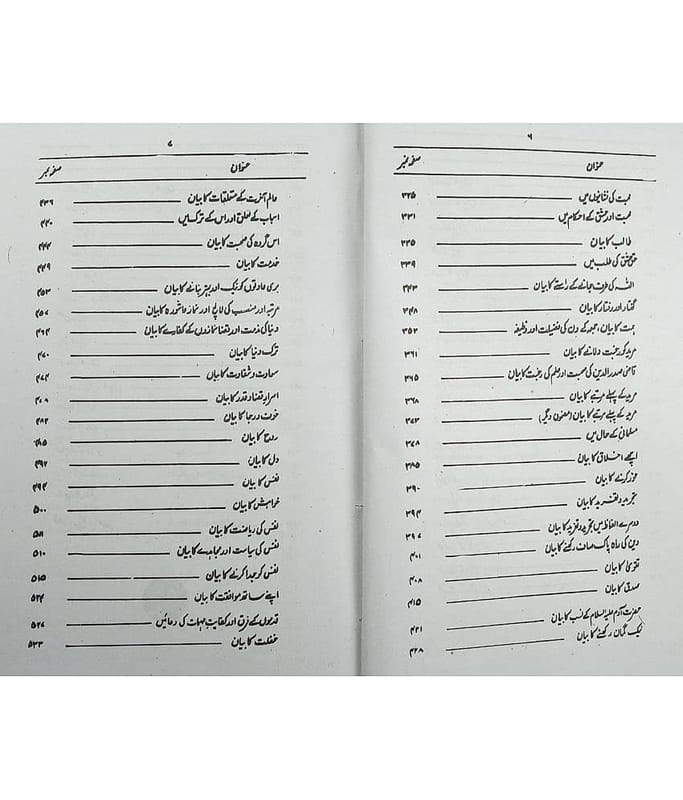 ۶
عنوان صفحہ نمبر
محبت کی نشانیوں میں ۳۲۵
محبت اور عشق کے احکام میں ۳۳۱
طالب کا بیان ۳۳۵
حق کی طلب میں ۳۳۹
اللہ کی طرف جانے کے راستے کا بیان ۳۴۳
گفتار اور رفتار کا بیان ۳۴۸
کا بیان، جمعہ کے دن کی فضیلت اور وظیفہ ۳۵۲
مرید کو رغبت دلانے کا بیان ۳۶۱
قاضی صدر الدین کی صحبت اور علم کی رغبت کا بیان ۳۶۵
مرید کے پہلے مرتبے کا بیان ۳۶۸
مرید کے پہلے مرتبے کا بیان (مضمون دیگر) ۳۷۳
مسلمانی کے حال میں ۳۷۸
اچھے اخلاق کا بیان ۳۸۵
غور کرنے کا بیان ۳۹۰
تجرید و تفرید کا بیان ۳۹۴
دوسرے الفاظ میں تجرید و تفرید کا بیان ۳۹۷
دین کی راہ پاک صاف رکھنے کا بیان ۴۰۱
تقویٰ کا بیان ۴۰۸
صدق کا بیان ۴۱۵
حضرت آدم علیہ السلام کے نسب کا بیان ۴۲۱
نیک گمان رکھنے کا بیان ۴۲۸
۷
عنوان صفحہ نمبر
عالم آخرت کے متعلقات کا بیان ۴۳۶
اسباب کے تعلق اور اس کے ترک میں ۴۴۰
اس گروہ کی صحبت کا بیان ۴۴۴
خدمت کا بیان ۴۴۹
بری عادتوں کو نیک اور بہتر بنانے کا بیان ۴۵۳
مرتبہ اور منصب کی لالچ اور نماز عاشورہ کا بیان ۴۵۷
دنیا کی مذمت اور قضا نمازوں کے کفارے کا بیان ۴۶۴
ترک دنیا کا بیان ۴۷۰
سعادت و شقاوت کا بیان ۴۷۴
اسرار قضا و قدر کا بیان ۴۷۹
خوف و رجا کا بیان ۴۸۲
روح کا بیان ۴۸۵
دل کا بیان ۴۹۲
نفس کا بیان ۴۹۴
خواہش کا بیان ۵۰۰
نفس کی ریاضت کا بیان
نفس کی سیاست اور مجاہدے کا بیان ۵۱۰
نفس کو جدا کرنے کا بیان ۵۱۵
اپنے ساتھ موافقت کا بیان ۵۲۴
قدموں کے فرق اور کفایت مہمات کی دعائیں ۵۲۷
غفلت کا بیان ۵۳۳